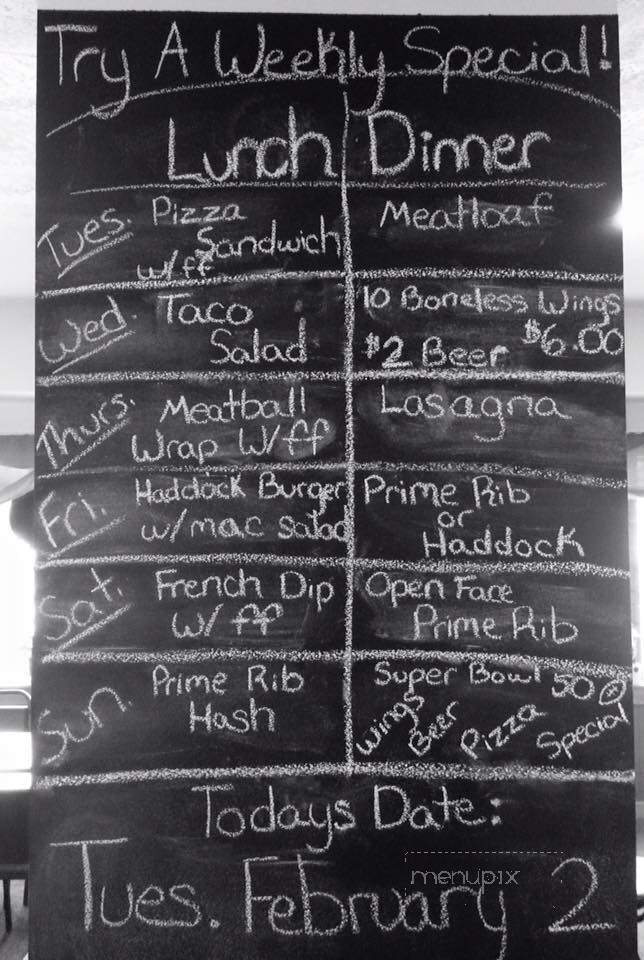 Try A Weekly Special!
Lunch Dinner
Tues. Pizza Sandwich w/ff
Meatloaf
Wed. Taco Salad
10 Boneless Wings
$6.00
$2 Beer
Thurs. Meatball
Wrap W/ff
Lasagna
Fri. Haddock Burger
w/mac salad
Prime Rib
or
Haddock
Sat. French Dip
w/ ff
Open Face
Prime Rib
Sun. Prime Rib
Hash
Super Bowl 50
Wings Beer Pizza Special
Todays Date:
menupix
Tues. February 2